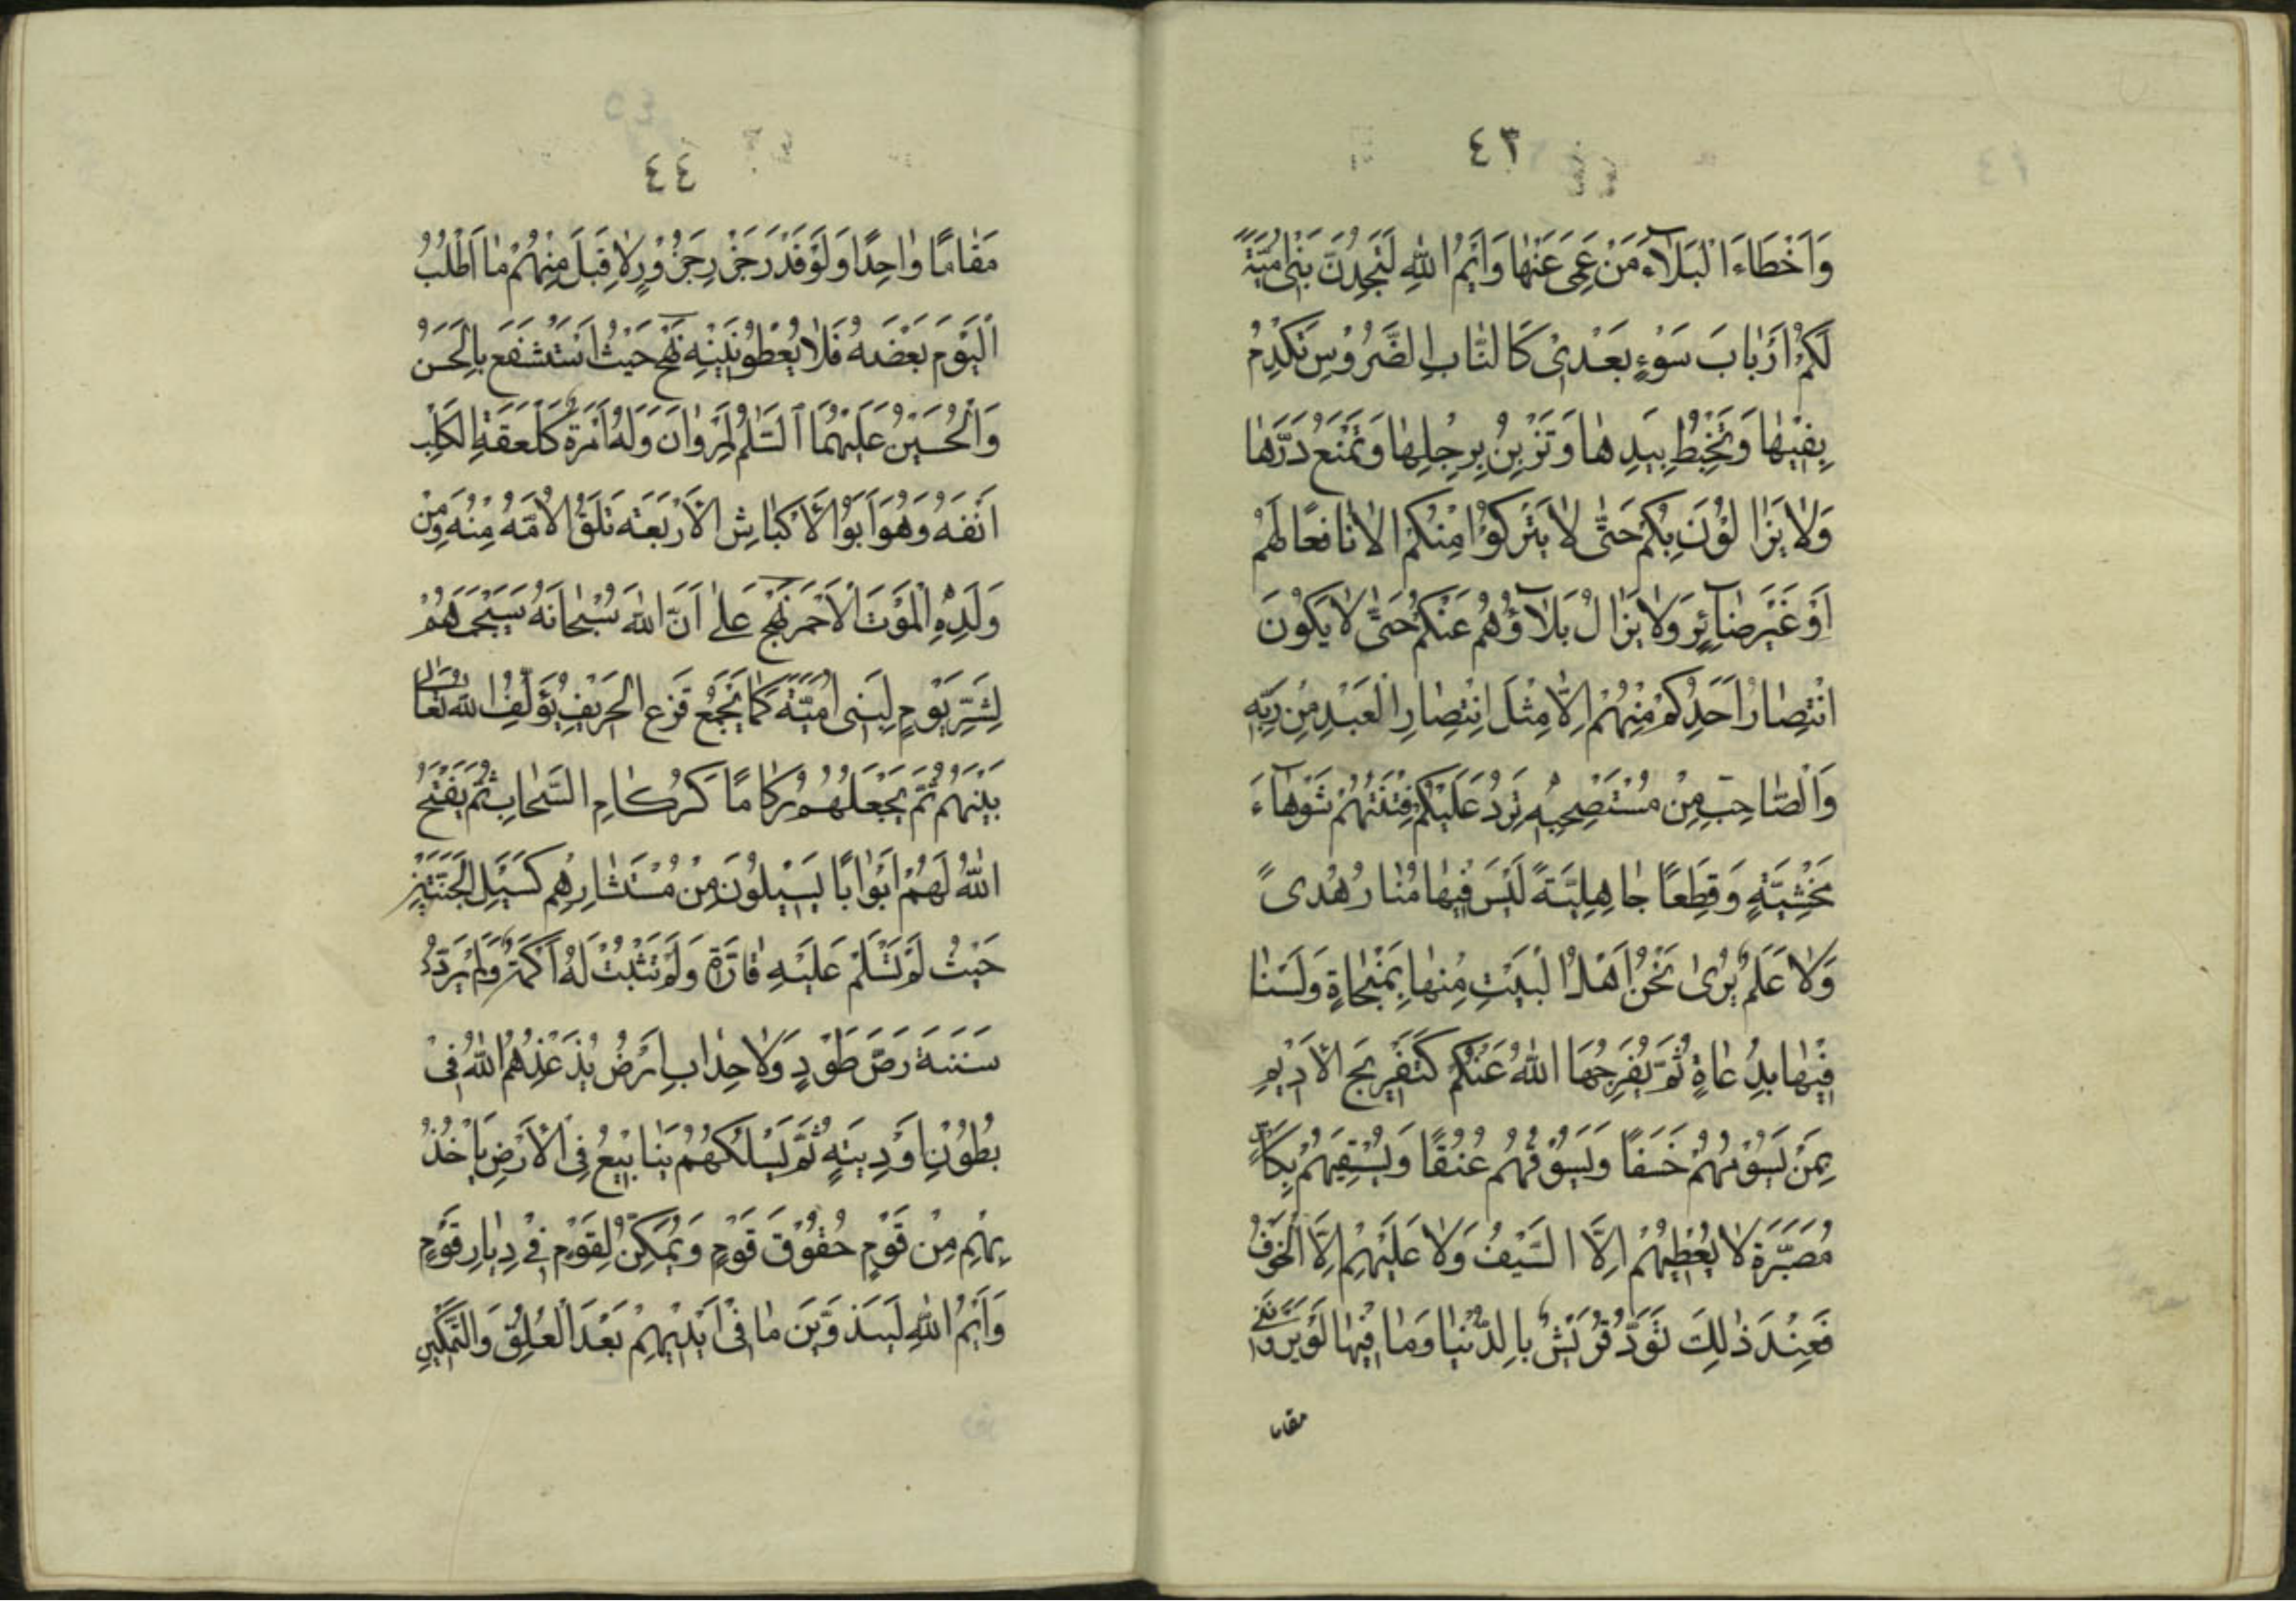 ٤٣
وَاَخْطَاءَ الْبَلَآءَ مَنْ عَمِىَ عَنْهٰا وَاَيْمُ اللّٰهِ لَتَجِدُنَّ بَنٖى اُمَيَّةَ
لَكُمْ اَرْبٰابَ سَوْءٍ بَعْدٖى كَالنّٰابِ الضَّرُوْسِ تَكْدِمُ
بِفِيْهٰا وَتَخْبِطُ بِيَدِهٰا وَتَزْبِنُ بِرِجْلِهٰا وَتَمْنَعُ دَرَّهٰا
وَلٰا يَزٰالُوْنَ بِكُمْ حَتّٰى لٰا يَتْرُكُوْا مِنْكُمْ اِلّٰا نٰافِعًا لَهُمْ
اَوْ غَيْرَ ضٰآئِرٍ وَلٰا يَزٰالُ بَلٰآؤُهُمْ عَنْكُمْ حَتّٰى لٰا يَكُوْنَ
انْتِصٰارُ اَحَدِكُمْ مِنْهُمْ اِلّٰا مِثْلَ انْتِصٰارِ الْعَبْدِ مِنْ رَبِّهٖ
وَالْصّٰاحِبِ مِنْ مُسْتَصْحِبِهٖ تَرِدُ عَلَيْكُمْ فِتْنَتُهُمْ شَوْهٰآءَ
مَخْشِيَّةٍ وَقِطَعًا جٰاهِلِيَّةً لَيْسَ فِيْهٰا مَنٰارُ هُدٰىً
وَلٰا عَلَمٌ يُرٰى نَحْنُ اَهْلَ الْبَيْتِ مِنْهٰا بِمَنْجٰاةٍ وَلَسْنٰا
فِيْهٰا بِدُعٰاةٍ ثُمَّ يُفَرِجُهَا اللّٰهُ عَنْكُمْ كَتَفْرِيْجِ الْاَدِيْمِ
بِمَنْ يَسُوْمُهُمْ خَسَفًا وَيَسُوْقُهُمْ عُنُقًا وَيُسْقِيْهِمْ بِكَاْسٍ
مُصَبَّرَةٍ لٰا يُعْطِيْهُمْ اِلَّا السَّيْفَ وَلٰا عَلَيْهِمْ اِلَّا الْخَوْفُ
فَعِنْدَ ذٰلِكَ تَوَدُّ قُرَيْشٌ بِالدُّنْيٰا وَمٰا فِيْهٰا لَوْ يَرَوْنَنٖى
مقاما
٤٤
مَقٰامًا وٰاحِدًا وَلَوْ قَدْرَ جَزْرِ جَزُوْرٍ لِاَقْبَلَ مِنْهُمْ مٰا اَطْلُبُ
الْيَوْمَ بَعْضَهُ فَلٰا يُعْطُوْنَنِيْهِ نهج حَيْثُ اسْتَشْفَعَ بِالْحَسَنُ
وَالْحُسَيْنُ عَلَيْهِمَا السَّلٰمُ لِمَرْوٰانَ وَلَهُ اَمْرَةٌ كَلَعْقَةِ الْكَلْبِ
اَنْفَهُ وَهُوَ اَبُوْا الْاَكْبٰاشِ الْاَرْبَعَةِ تَلْقَ الْاُمَّهُ مِنْهُ وَمِنْ
وَلَدِهِ الْمَوْتَ الْاَحْمَرَ نهج عَلٰى اَنَّ اللّٰهَ سُبْحٰانَهُ سَيَجْمَعُهُمْ
لِشَرِّ يَوْمٍ لِبَنٖى اُمَيَّةَ كَمٰا يَجْمَعُ قَزَعَ الْخَرِيْفِ يُؤَلِّفُ اللّٰهُ تَعٰالٰى
بَيْنَهُمْ ثُمَّ يَجْعَلُهُمْ رُكٰامًا كَرُكٰامِ السَّحٰابِ ثُمَّ يَفْتَحُ
اللّٰهُ لَهُمْ اَبْوٰابًا يَسِيْلُوْنَ مِنْ مُسْتَثٰارِهِمْ كَسَيْلِ الْجَنَّتَيْنِ
حَيْثُ لَمْ تَسْلَمْ عَلَيْهِ قٰارَةٌ وَلَمْ تَثْبُتْ لَهُ اَكَمَةٌ وَلَمْ يَرُدَّ
سَنَنَهُ رَصُّ طَوْدٍ وَلٰا حِدٰابِ اَرْضٍ يُذَعْذِعُهُمُ اللّٰهُ فٖى
بُطُوْنِ اَوْدِيَتِهٖ ثُمَّ يَسْلُكُهُمْ يَنٰابِيْعَ فِى الْاَرْضِ يَاْخُذُ
بِهِمْ مِنْ قَوْمٍ حُقُوْقَ قَوْمٍ وَيُمَكِّنُ لِقَوْمٍ فٖى دِيٰارِ قَوْمٍ
وَاَيْمُ اللّٰهِ لَيَذُوْبَنَّ مٰا فٖى اَيْدِيْهِمْ بَعْدَ الْعُلُوِّ وَالتَّمْكِيْنِ